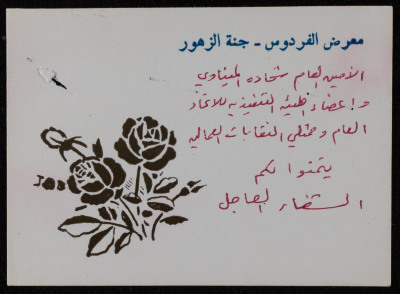 معرض الفردوس - جنة الزهور
الأمين العام شحاده المنياوي
وأعضاء الهيئه التنفيذيه للاتحاد
العام وممثلي النقابات العماليه
يتمنوا لكم
الشفاء العاجل